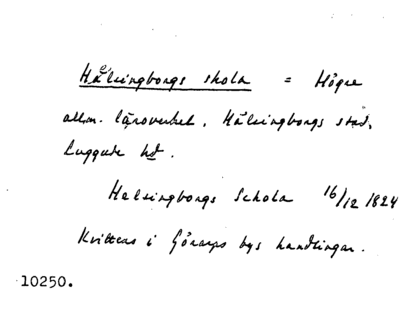 Hälsingborgs skola = Högre
allm. läroverket, Hälsingborgs stad,
Luggude hd.
Helsingborgs Schola 16/12 1824
Kvittens i Görarps bys handlingar.
10250.